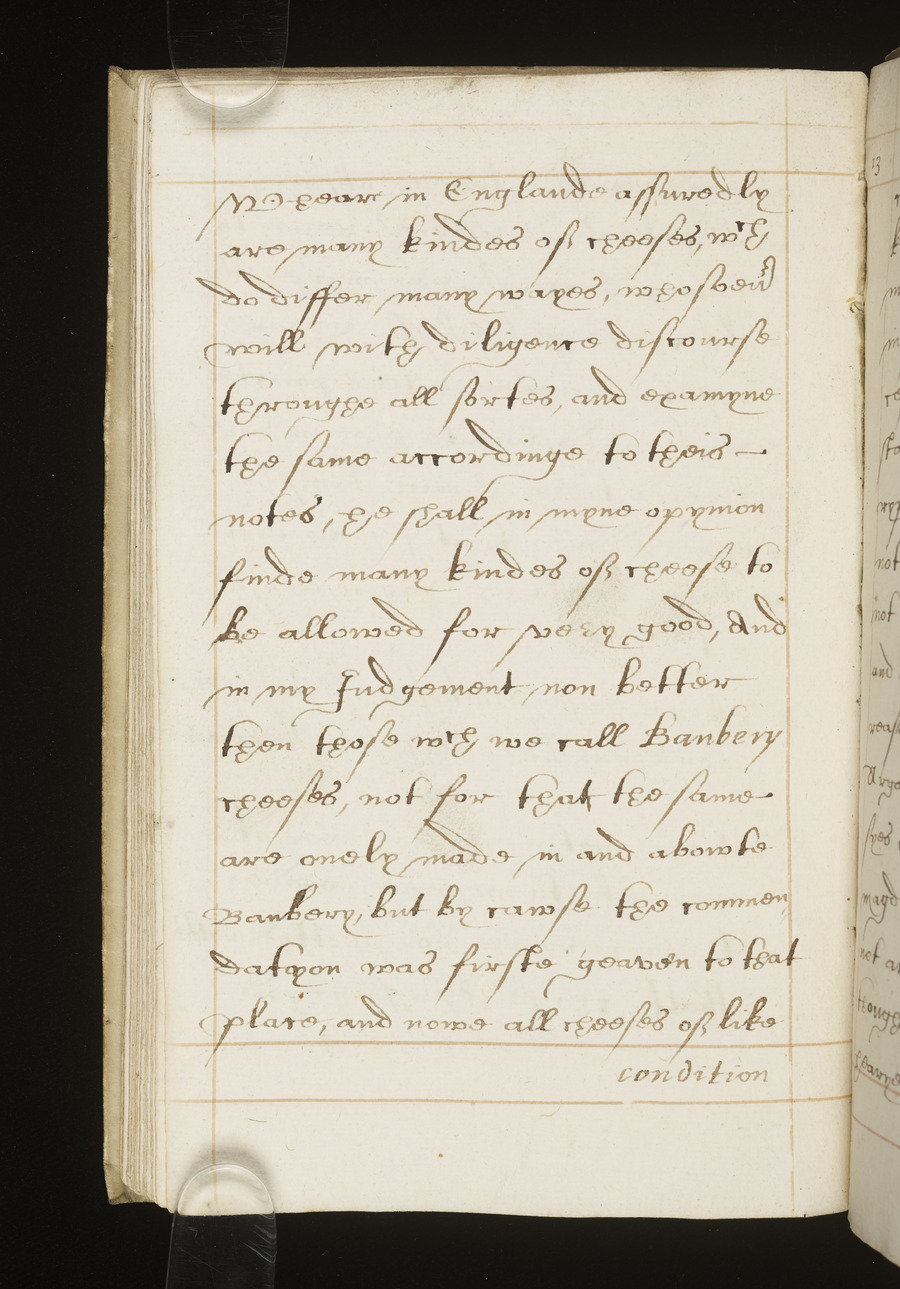 Wheare in Englande assuredly
are many kindes of cheeses, wch
do differ many wayes, whosoeur
will with diligence discourse
throughe all sortes, and examyne
the same accordinge to theis
notes, he shall in myne opynion
finde many kindes of cheese to
be allowed for very good, And
in my Judgement non better
then those wch we call Banbery
cheeses, not for that the same
are onely made in and abowte
Banbery, but by cawse the commen,
datyon was firste geaven to that
place, and nowe all cheeses of like
condition
13